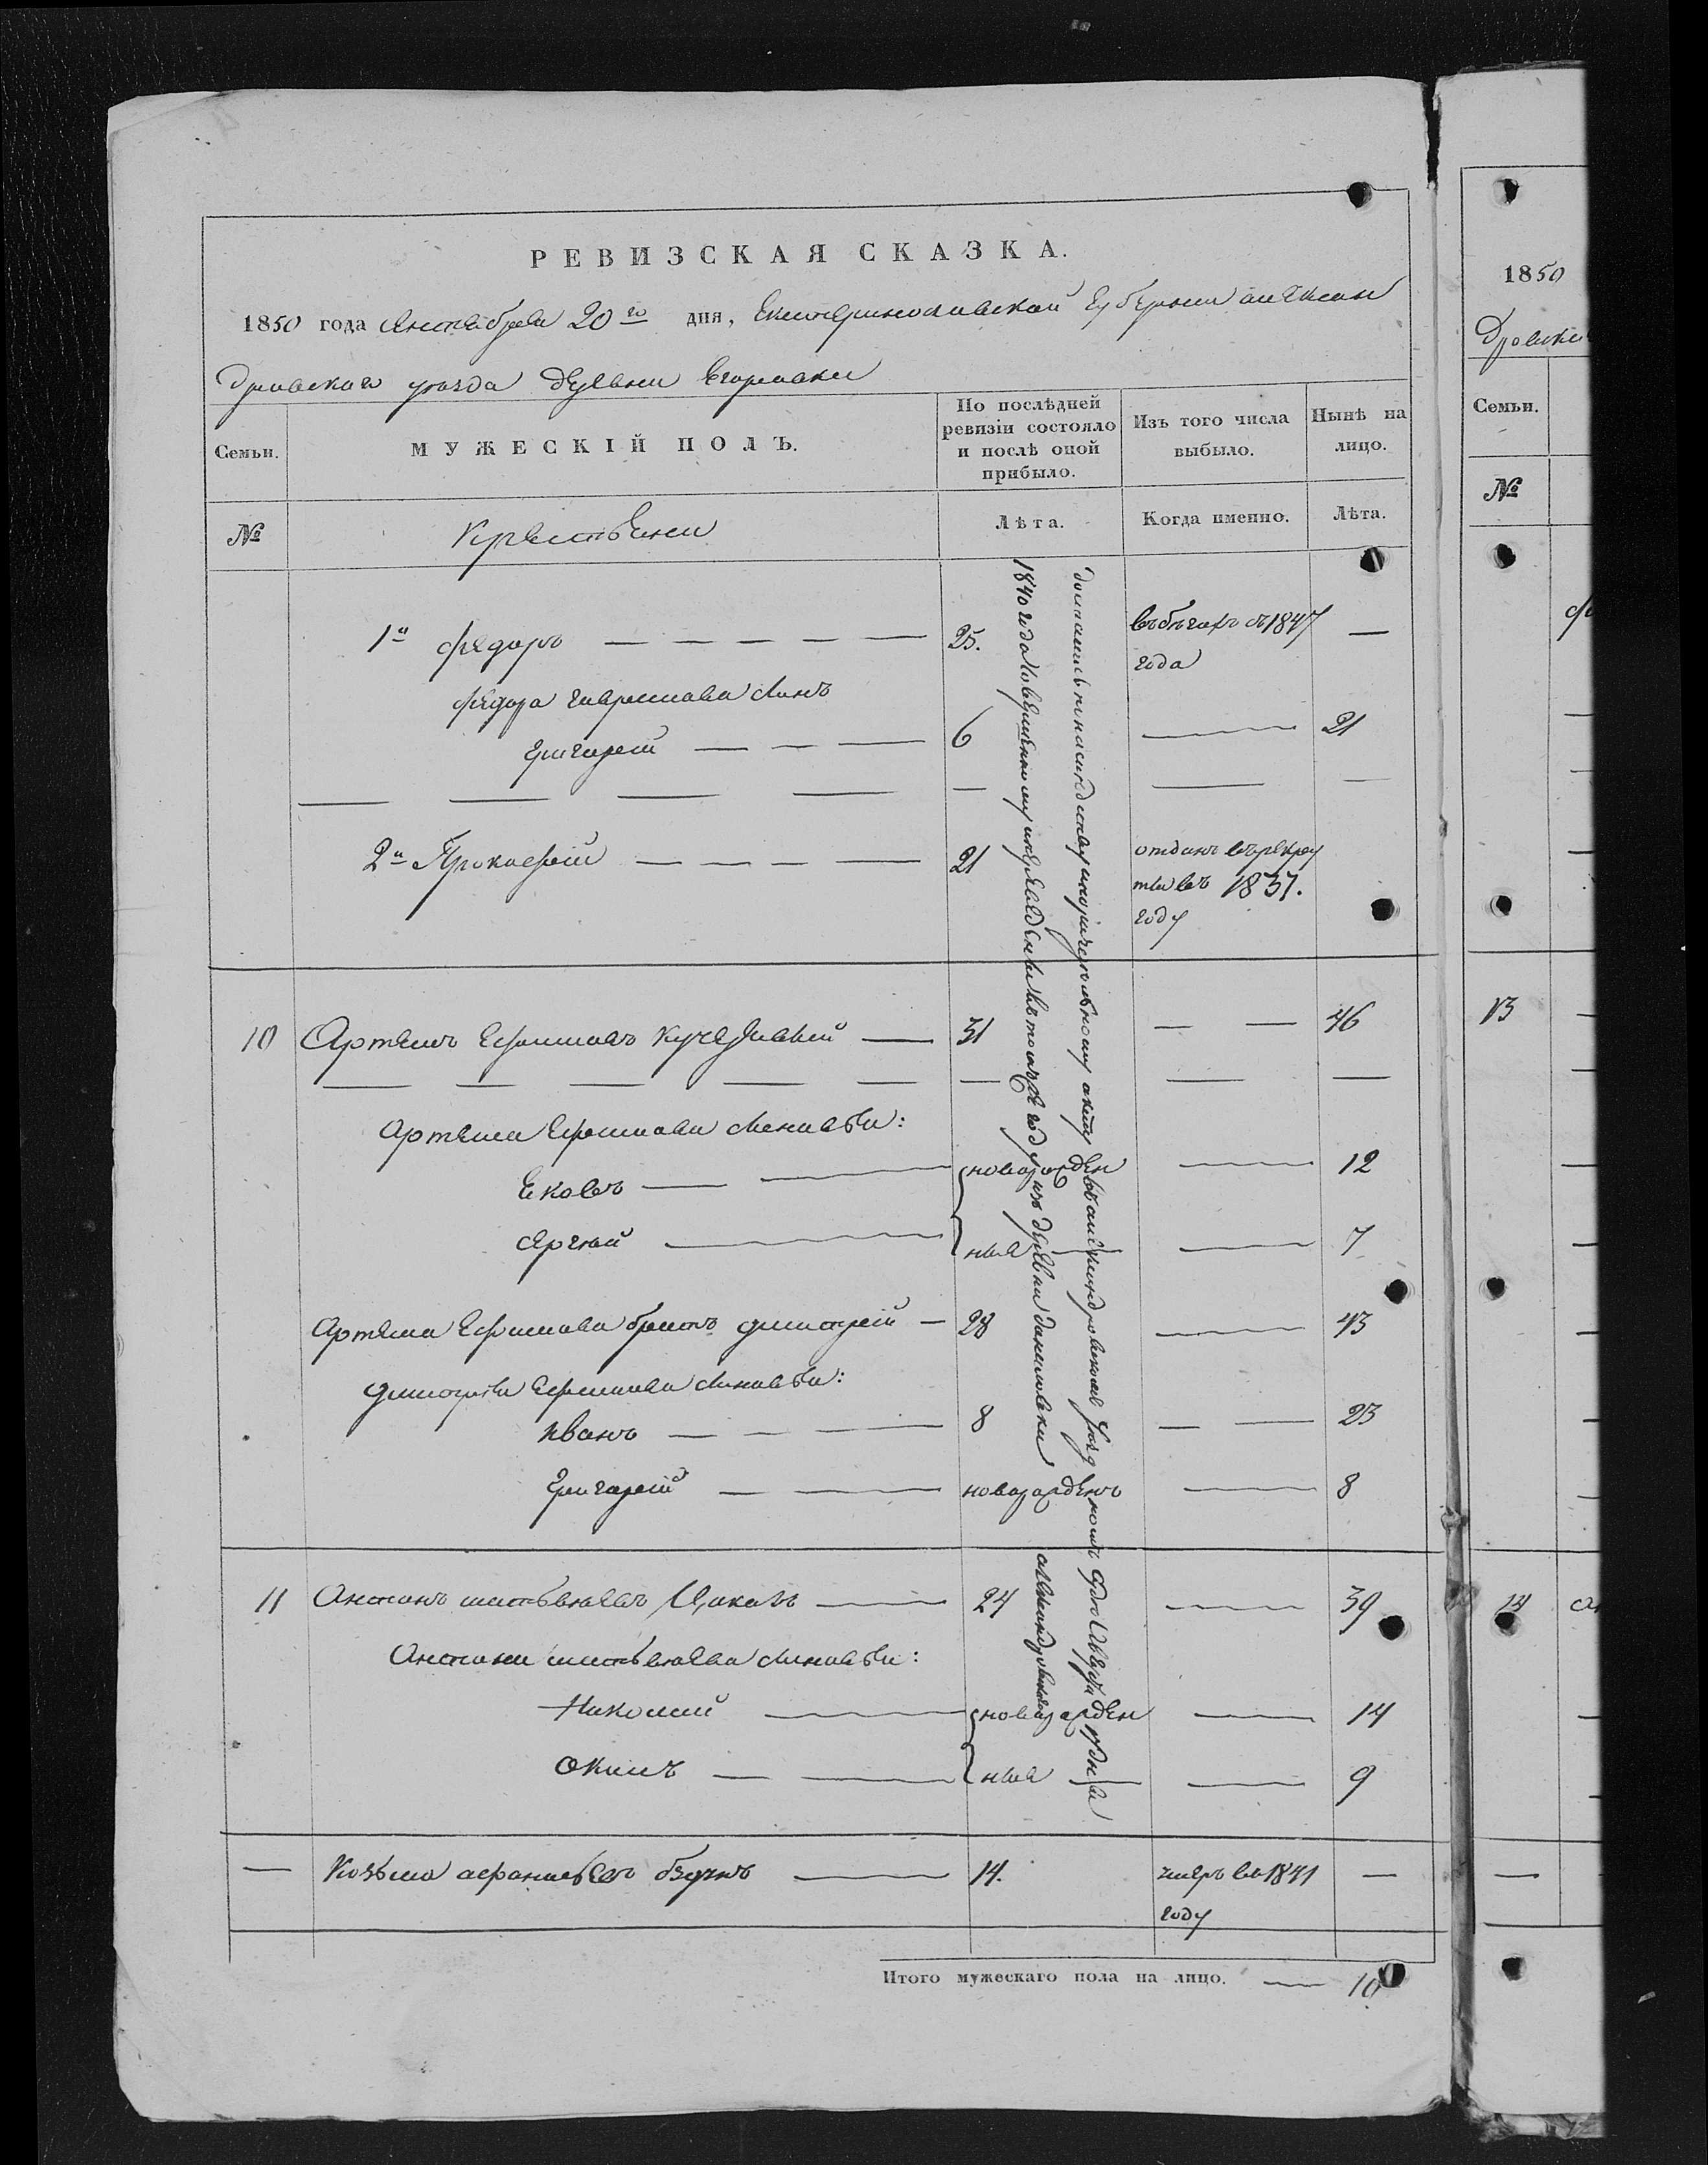 РЕВИЗСКАЯ СКАЗКА.
1850 года Октебреа 20го дня, Екатеринославской губернии алексан
дровскаго уезда деревни Егоровки
Семьи.
МУЖЕСКІЙ ПОЛЪ.
По послѣдней ревизіи состояло и послѣ оной прибыло.
Изъ того числа выбыло.
Нынѣ на лицо.
№
Крестьяни
Лѣта.
Когда именно.
Лѣта.
1й федоръ 25. въбегахъ съ 1847 года —
федора гаврилова синъ
григорей 6 — 21
2й Прокофей 21 отданъ врекру
ты въ 1837.
году
10 Артемъ Ефимовъ 31 — 46
Артема Ефимова синовьи:
Яковъ новорожден 12
Сергей ныя 7
Артема Ефимова братъ дмитрей 28 — 43
дмитрея Ефимова синовьи:
Иванъ 8 — 23
григорей новорожденъ — 8
11 Антонъ матвеевъ Цаковъ 24 — 39
Антона матвеева синовьи:
Николай новорожден 14
Окимъ ныя 9
— Козьма афанасьевъ 14. умеръ въ 1841 —
году
1840 года по въ томже году изъ деревни даниловки
Итого мужескаго пола на лицо. — 10
1850
Дровски
Семьи.
№
13
14